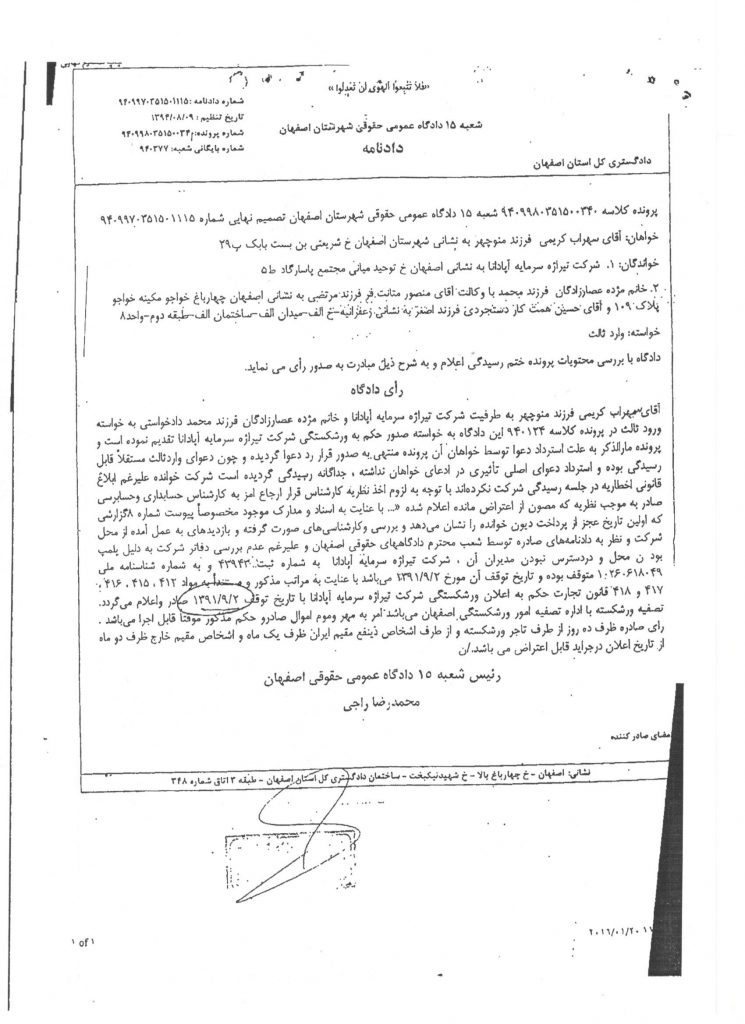 «فلا تتبعوا الهوی ان تعدلوا»
شماره دادنامه: ۹۴۰۹۹۷۰۳۵۱۵۰۱۱۱۵
تاریخ تنظیم: ۱۳۹۴/۰۸/۰۹
شماره پرونده: ۹۴۰۹۹۸۰۳۵۱۵۰۰۳۴۰
شماره بایگانی شعبه: ۹۴۰۳۷۷
شعبه ۱۵ دادگاه عمومی حقوقی شهرستان اصفهان
دادنامه
دادگستری کل استان اصفهان
پرونده کلاسه ۹۴۰۹۹۸۰۳۵۱۵۰۰۳۴۰ شعبه ۱۵ دادگاه عمومی حقوقی شهرستان اصفهان تصمیم نهایی شماره ۹۴۰۹۹۷۰۳۵۱۵۰۱۱۱۵
خواهان: آقای سهراب کریمی فرزند منوچهر به نشانی شهرستان اصفهان خ شریعتی بن بست بابک پ۲۹
خواندگان: ۱. شرکت تیراژه سرمایه آپادانا به نشانی اصفهان خ توحید میانی مجتمع پاسارگاد ط۵
۲. خانم مژده عصارزادگان فرزند محمد با وکالت آقای منصور متانت فر فرزند مرتضی به نشانی اصفهان چهارباغ خواجو مکینه خواجو
پلاک ۱۰۹ و آقای حسین همت کار دستجردی فرزند اصغر به نشانی زعفرانیه-خ الف-میدان الف-ساختمان الف-طبقه دوم-واحد۸
خواسته: وارد ثالث
دادگاه با بررسی محتویات پرونده ختم رسیدگی اعلام و به شرح ذیل مبادرت به صدور رأی می نماید.
رأی دادگاه
آقای سهراب کریمی فرزند منوچهر به طرفیت شرکت تیراژه سرمایه آپادانا و خانم مژده عصارزادگان فرزند محمد دادخواستی به خواسته
ورود ثالث در پرونده کلاسه ۹۴۰۱۳۴ این دادگاه به خواسته صدور حکم به ورشکستگی شرکت تیراژه سرمایه آپادانا تقدیم نموده است و
پرونده مارالذکر به علت استرداد دعوا توسط خواهان آن پرونده منتهی به صدور قرار رد دعوا گردیده و چون دعوای واردثالث مستقلاً قابل
رسیدگی بوده و استرداد دعوای اصلی تأثیری در ادعای خواهان نداشته ، جداگانه رسیدگی گردیده است شرکت خوانده علیرغم ابلاغ
قانونی اخطاریه در جلسه رسیدگی شرکت نکرده‌اند با توجه به لزوم اخذ نظریه کارشناس قرار ارجاع امر به کارشناس حسابداری وحسابرسی
صادر به موجب نظریه که مصون از اعتراض مانده اعلام شده «... با عنایت به اسناد و مدارک موجود مخصوصاً پیوست شماره ۸گزارشی
که اولین تاریخ عجز از پرداخت دیون خوانده را نشان می‌دهد و بررسی وکارشناسی‌های صورت گرفته و بازدیدهای به عمل آمده از محل
شرکت و نظر به دادنامه‌های صادره توسط شعب محترم دادگاههای حقوقی اصفهان و علیرغم عدم بررسی دفاتر شرکت به دلیل پلمپ
بود ن محل و دردسترس نبودن مدیران آن ، شرکت تیراژه سرمایه آپادانا به شماره ثبت ۴۳۹۴۳ و به شماره شناسنامه ملی
۱۰۲۶۰۶۱۸۰۴۹ متوقف بوده و تاریخ توقف آن مورخ ۱۳۹۱/۹/۲ می‌باشد با عنایت به مراتب مذکور و مستنداً به مواد ۴۱۲ ، ۴۱۵ ، ۴۱۶ ،
۴۱۷ و ۴۱۸ قانون تجارت حکم به اعلان ورشکستگی شرکت تیراژه سرمایه آپادانا با تاریخ توقف ۱۳۹۱/۹/۲ صادر واعلام می‌گردد.
تصفیه ورشکسته با اداره تصفیه امور ورشکستگی اصفهان می‌باشد امر به مهر وموم اموال صادرو حکم مذکور موقتاً قابل اجرا می‌باشد .
رای صادره ظرف ده روز از طرف تاجر ورشکسته و از طرف اشخاص ذینفع مقیم ایران ظرف یک ماه و اشخاص مقیم خارج ظرف دو ماه
از تاریخ اعلان درجراید قابل اعتراض می باشد./ن
رئیس شعبه ۱۵ دادگاه عمومی حقوقی اصفهان
محمدرضا راجی
امضای صادر کننده
نشانی: اصفهان - خ چهارباغ بالا - خ شهیدنیکبخت - ساختمان دادگستری کل استان اصفهان - طبقه ۳ اتاق شماره ۳۴۸
۲۰۱۶/۰۱/۲۰
۱ of ۱